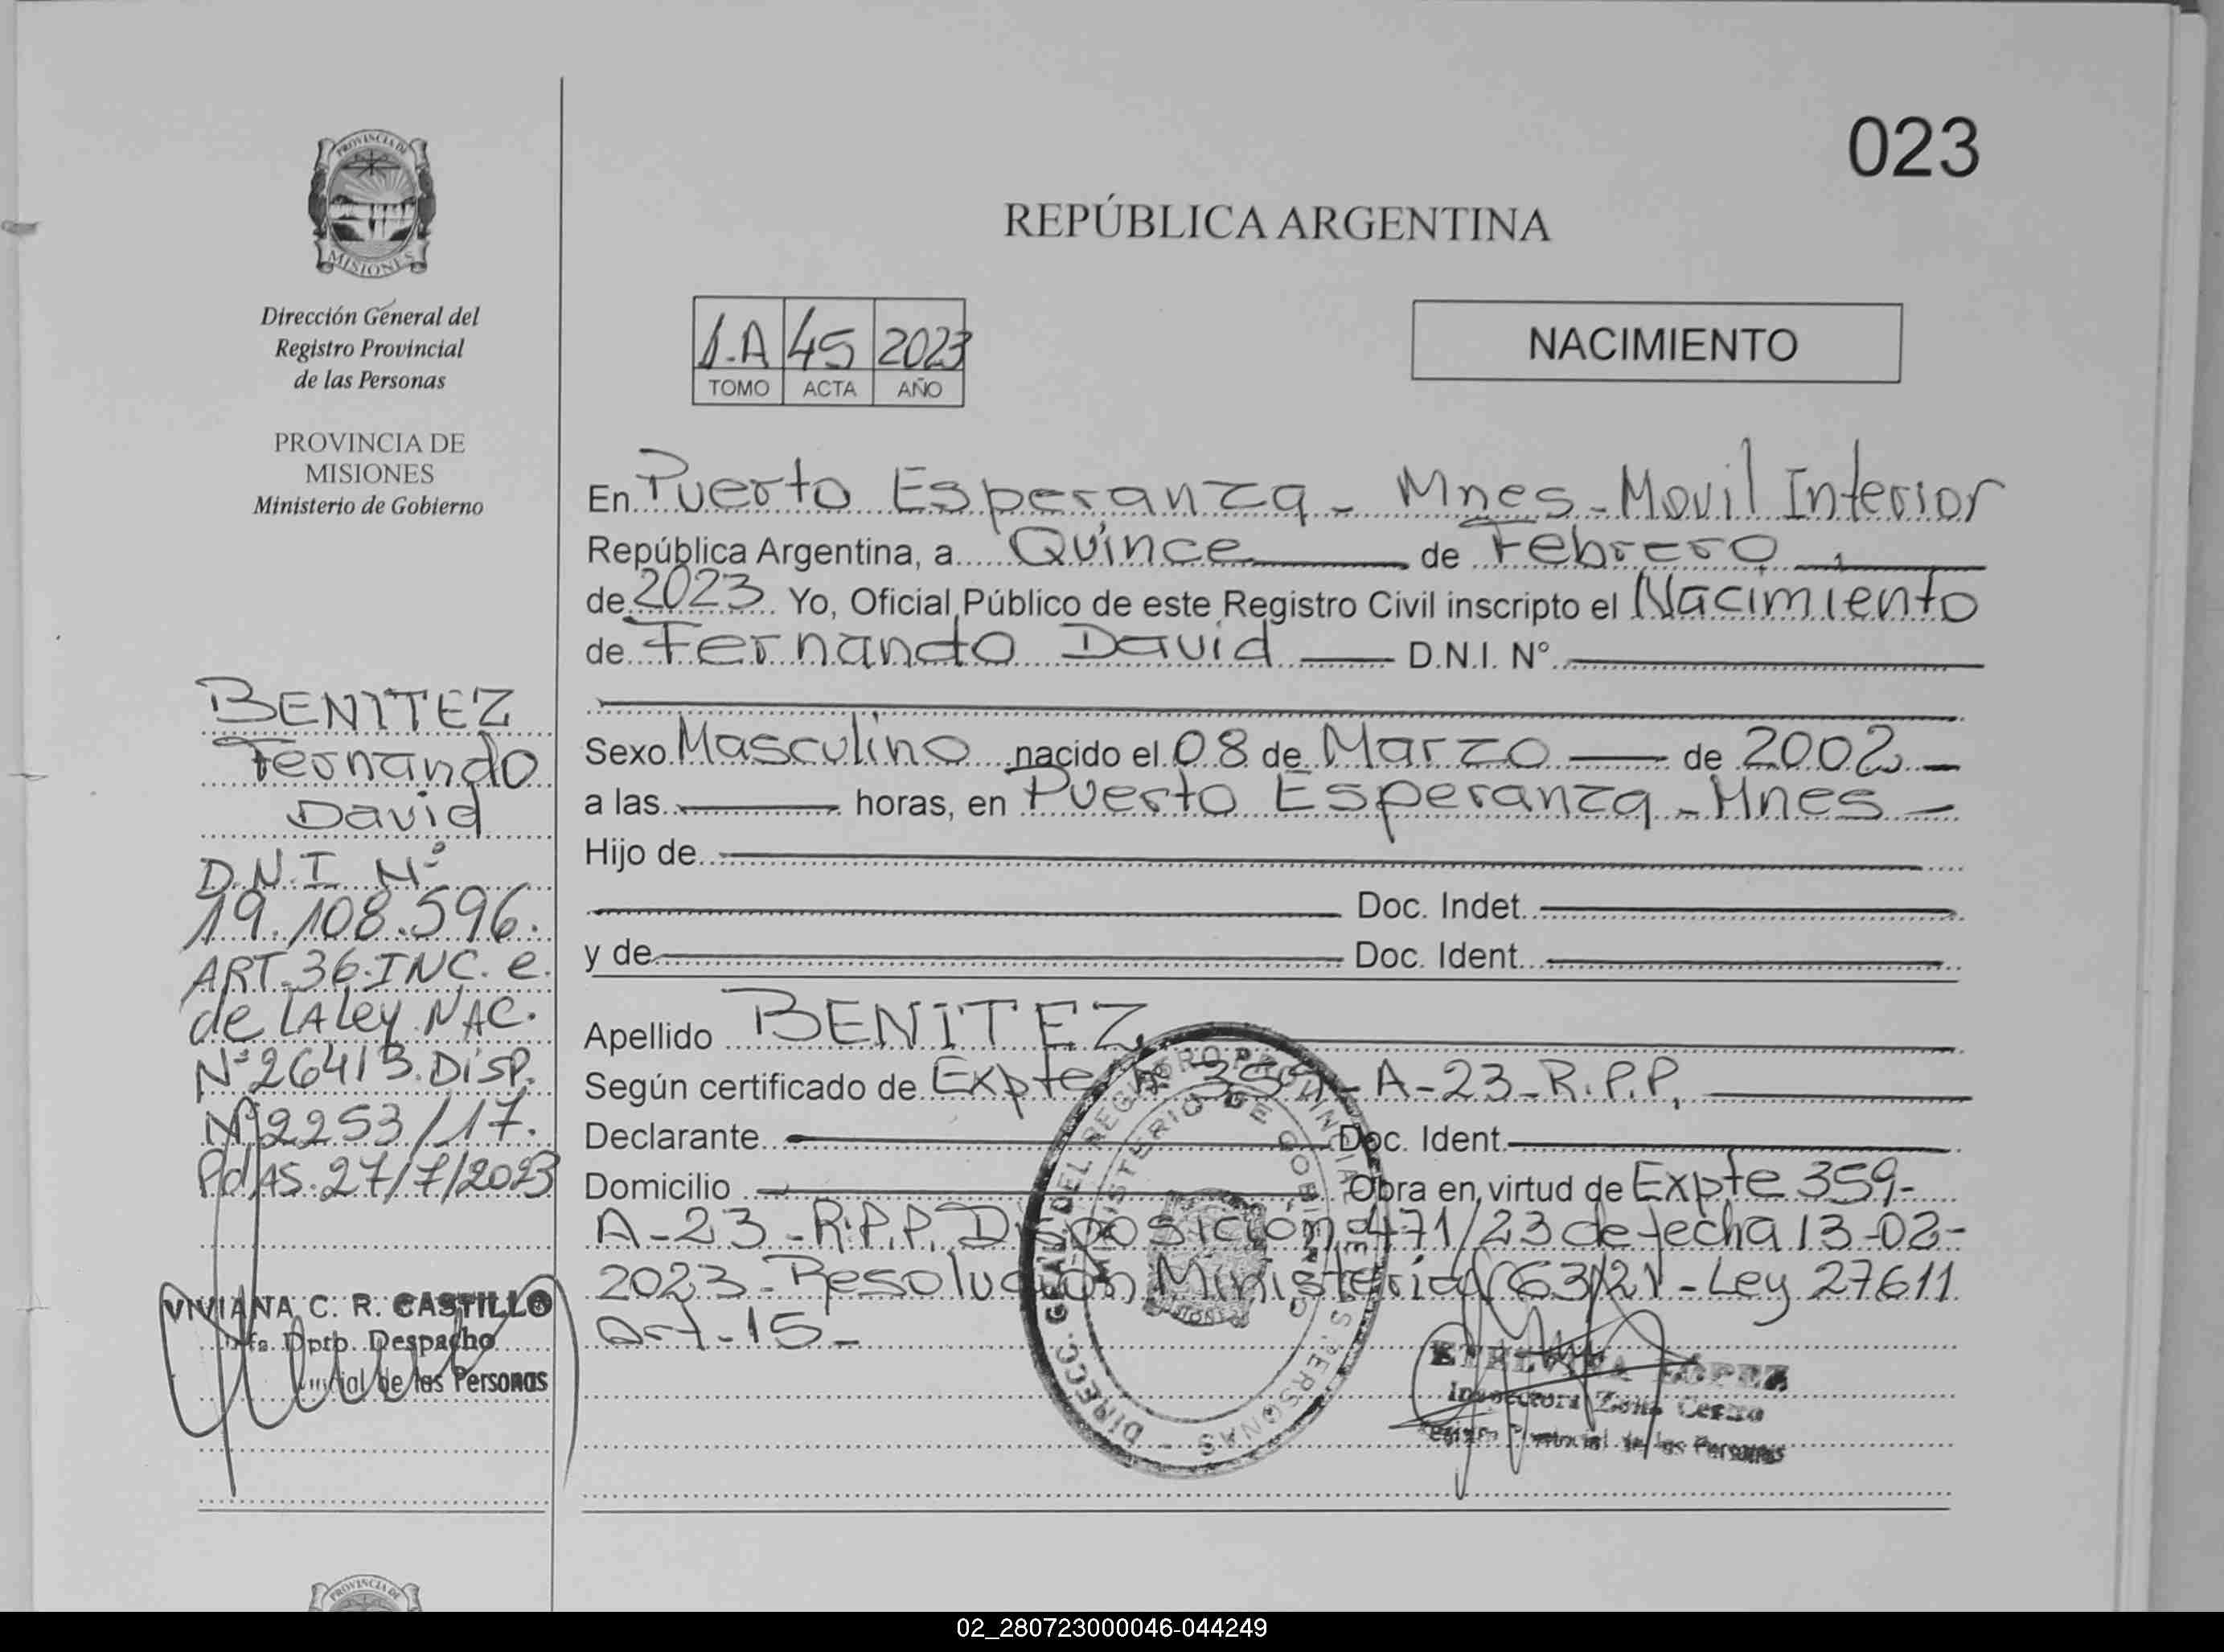 023
REPÚBLICA ARGENTINA
PROVINCIA DE
MISIONES
Dirección General del
Registro Provincial
de las Personas
PROVINCIA DE
MISIONES
Ministerio de Gobierno
1.A 45 2023
TOMO ACTA AÑO
NACIMIENTO
En Puerto Esperanza - Mnes - Movil Interior
República Argentina, a Quince de Febrero
de 2023 Yo, Oficial Público de este Registro Civil inscripto el Nacimiento
de Fernando David D.N.I. N°
Sexo Masculino nacido el 08 de Marzo de 2002
a las horas, en Puerto Esperanza - Mnes
Hijo de
Doc. Indet.
y de Doc. Ident.
Apellido BENITEZ
Según certificado de Expte N° 359 - A - 23 - R.P.P.
Declarante Doc. Ident.
Domicilio Obra en virtud de Expte 359-
A - 23 - R.P.P. Disposición 471/23 de fecha 13-02-
2023 - Resolución Ministerial 63/21 - Ley 27611
Art - 15 -
BENITEZ
Fernando
David
D.N.I N°
19.108.596.
ART. 36. INC. e.
de LA Ley. NAC.
N° 26413. DISP.
N° 2253/17.
PdAS. 27/7/2023
VIVIANA C. R. CASTILLO
Dpto. Despacho
de las Personas
DIREC. GRAL. DEL REGISTRO PROVINCIAL DE LAS PERSONAS
MINISTERIO DE GOBIERNO
MISIONES
LÓPEZ
Inspectora Zona
de las Personas
PROVINCIA DE
02_280723000046-044249